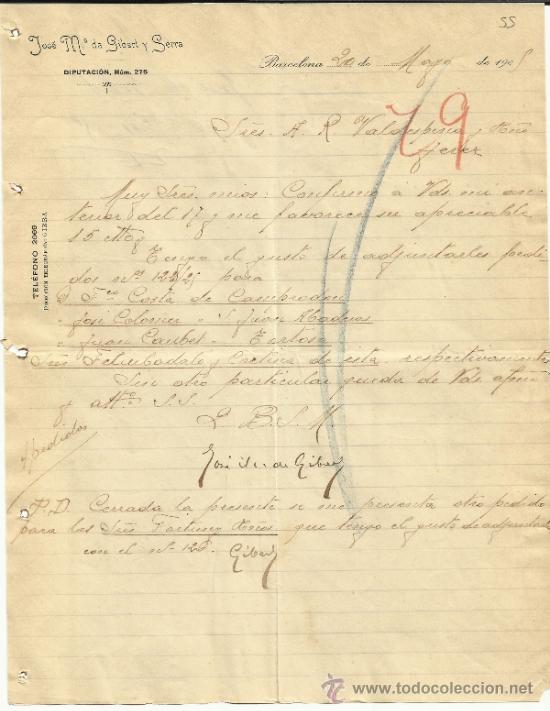 55
José Mª de Gibert y Serra
DIPUTACIÓN, Núm. 276
Barcelona 20 de Mayo de 190
79
Sres. A. R Valdespino y Hno
Jerez
Muy Sres. mios: Confirmo á Vds. mi an
terior del 17 y me favorece su apreciable
15 
Tengo el gusto de adjuntarles pedi
dos nº 122/25 para
D. Fco Costa de Camprodon
" José Colomer " S. Juan Abadesas
" Juan Caubet " Tortosa
Sres y Cortina de esta respectivamente
Sin otro particular queda de Vds. afmo
y atto S. S.
Q B. S. M.
José Mª de Gibert
4 pedidos
P.D. Cerrada la presente se me presenta otro pedido
para los Sres Fortuny Hnos que tengo el gusto de adjuntarles
con el nº 126. Gibert
TELÉFONO 2069
DIRECCIÓN TELEGRÁFICA: GISRA
www.todocoleccion.net